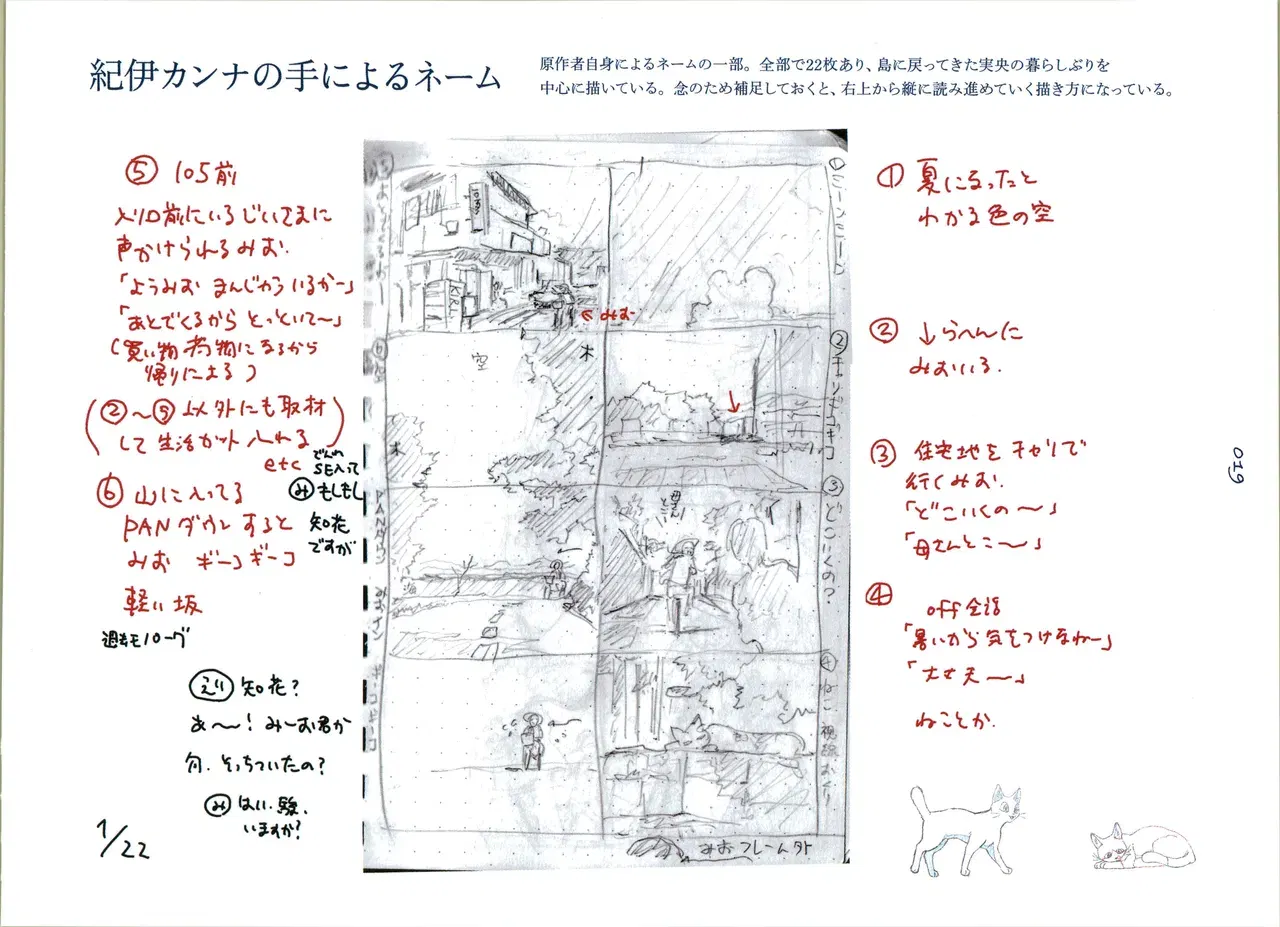 紀伊カンナの手によるネーム
原作者自身によるネームの一部。全部で22枚あり、島に戻ってきた実央の暮らしぶりを
中心に描いている。念のため補足しておくと、右上から縦に読み進めていく描き方になっている。
① 夏になったと
わかる色の空
② ↓らへんに
みおいる.
③ 住宅地をチャリで
行くみお.
「どこいくの〜」
「母さんとこ〜」
④
off会話
「暑いから気をつけなねー」
「大丈夫〜」
ねことか.
① ミーンミーン
② チャリギコギコ
③ どこいくの?
母さんとこ
④ ねこ 視線おくり
みおフレーム外
みお
木
空
木
⑥
PANダウン みおイン ギーコギーコ
⑤ 10S前
入り口前にいるじいさまに
声かけられるみお.
「ようみお まんじゅういるかー」
「あとでくるから とっといて〜」
(買い物 荷物になるから
帰りによる)
(②〜⑤以外にも取材
して生活カット入れる)
etc
でんわ
SE入って
み もしもし
知花
ですが
⑥ 山に入ってる
PANダウンすると
みお ギーコギーコ
軽い坂
過去モノローグ
えり 知花?
あ〜〜! みーお君か
何. そっちついたの?
み はい. 駿.
いますか?
1/22
019